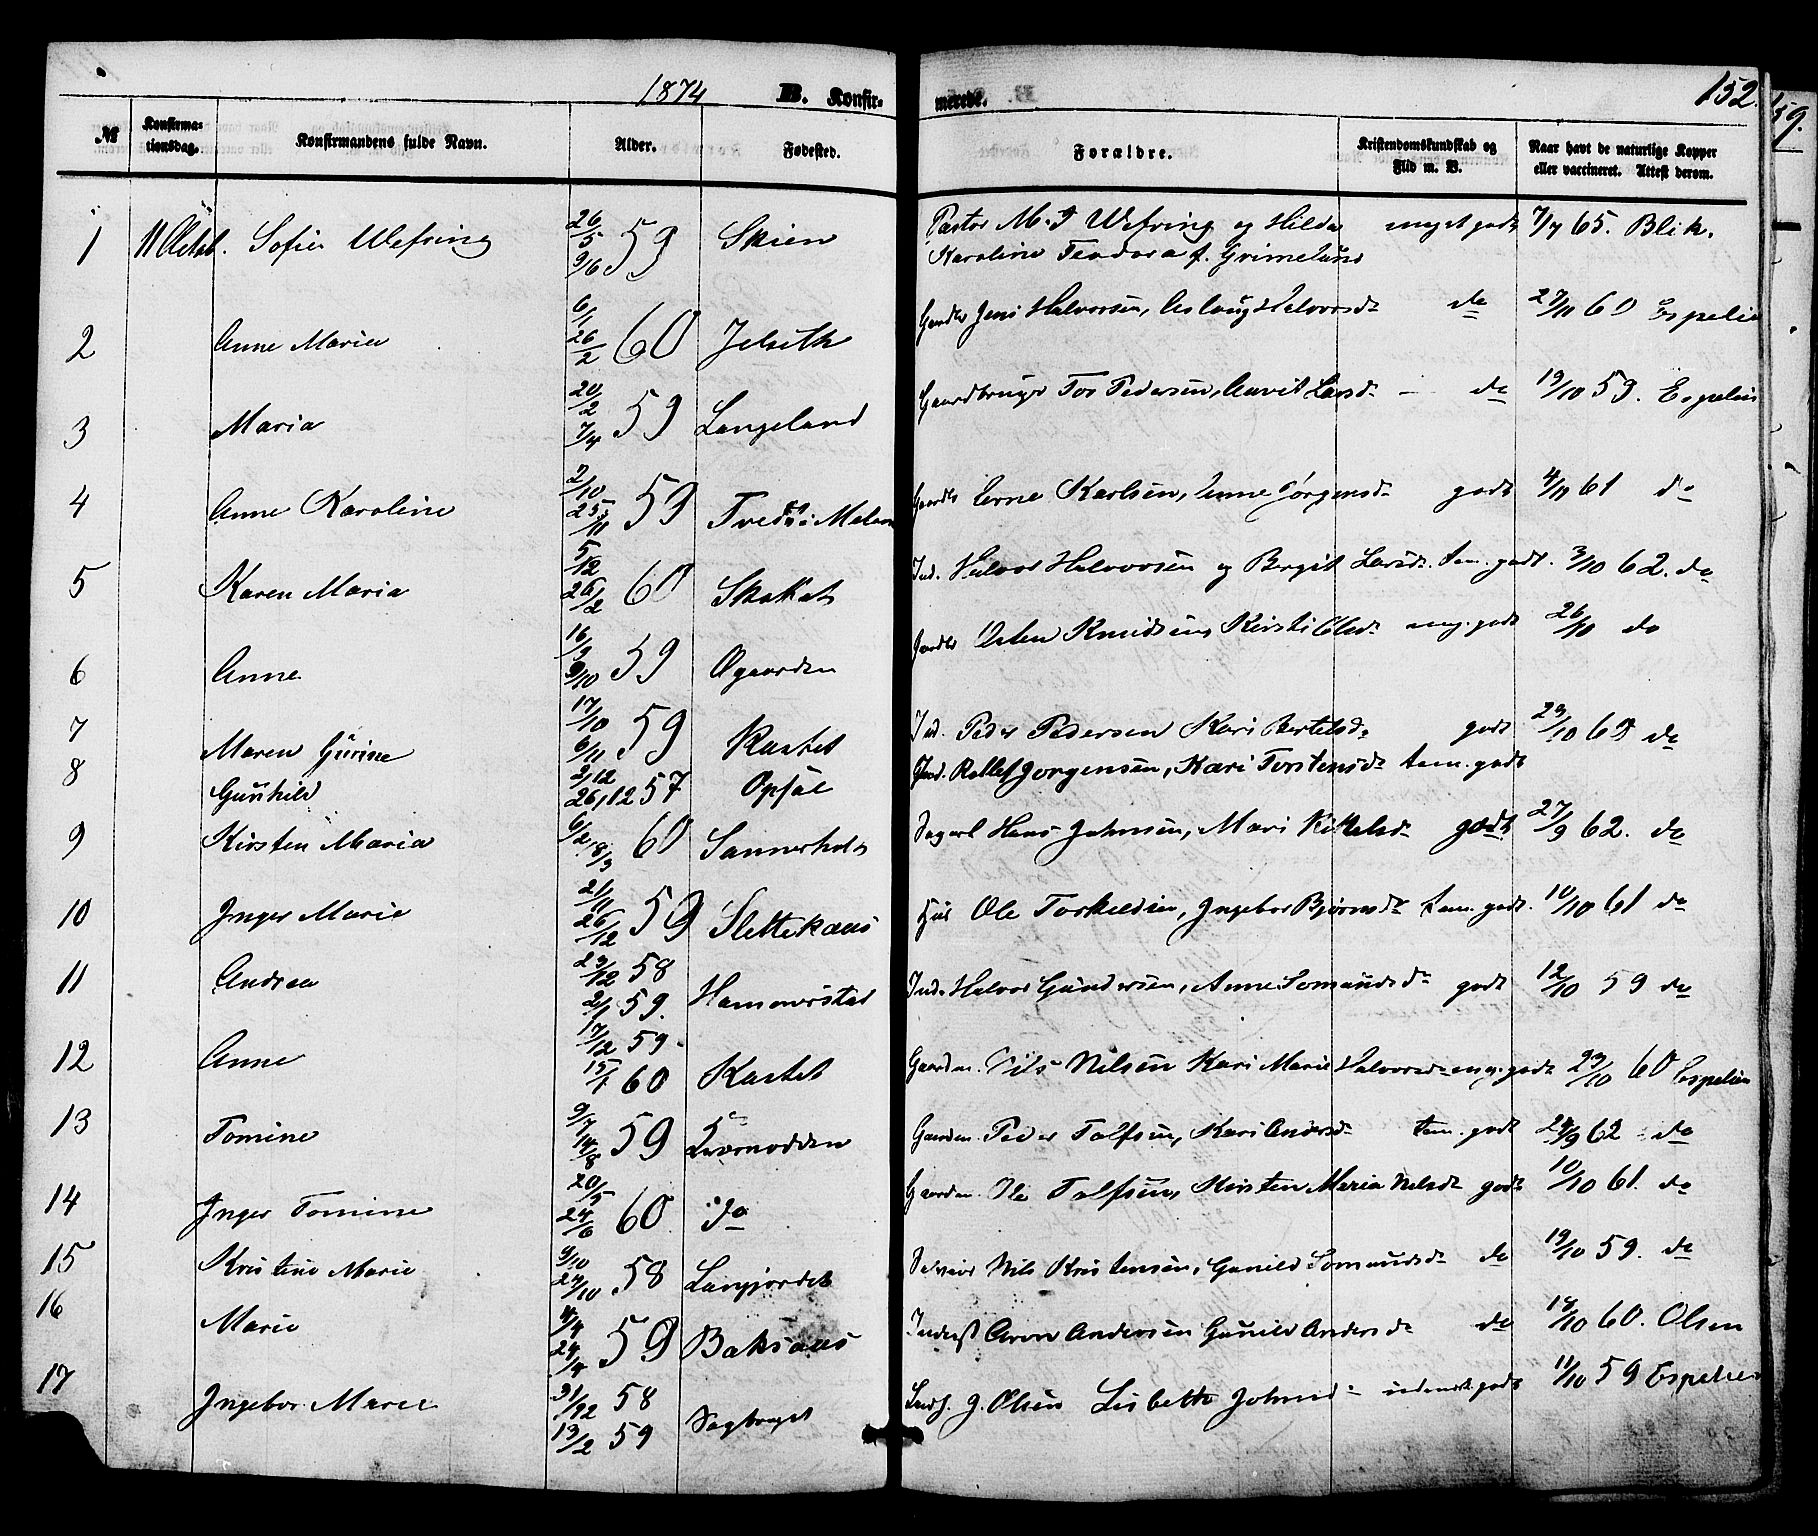 1874 B. Konfirmerede. 152.
159.
№ Konfirmationsdag. Konfirmandens fulde Navn. Alder. Fødested. Forældre. Kristendomskundskab og Flid m. V. Naar havt de naturlige Kopper eller vaccineret. Attest derom.
1 11 Oktob. Sofie Wefring 26/5 9/6 59 Skien Pastor M. J Wefring og Hilda meget godt 7/7 65. Blik.
Karoline Teodora f. Grimelund
2 Anne Maria 6/1 26/2 60 Jelseth Gaardbr Jens Halvorsen, Aslaug Halvorsd. do 27/11 60 Espelin
3 Maria 20/2 7/4 59 Langeland Gaardbruger Tor Pedersen, Marit Larsd. - do 19/10 59. Espelin
4 Anne Karoline 2/10 25/11 59 Tvedt i Melum Gaardbr Arne Karlsen, Anne Jørgensd. godt 4/10 61 do
5 Karen Maria 5/12 26/2 60 Skakat Ind. Halvor Halvorsen og Bergit Larsd. tem. godt. 3/10 62. do
6 Anne 16/9 9/10 59 Øgaarden Gaardbr Østen Knudsen, Kirsti Olsd. meg. godt 26/10 do
7 Maren Gurine 17/10 6/11 59 Kastet Ind. Peder Pedersen Kari Bertelsd. godt 23/10 62 do
8 Gunhild 2/12 26/12 57 Opsal Ind. Rollef Jørgensen, Kari Torstensd. tem. godt
9 Kirsten Maria 6/2 18/3 60 Sannerholt Sagarb Hans Johnsen, Mari Kittelsd. godt 27/9 62. do
10 Inger Marie 21/11 26/12 59 Slettekaas Hus Ole Torkildsen, Ingebor Bjørnsd. tem. godt. 10/10 61 do
11 Andrea 23/12 58 2/1 59. Hammerstad Ind. Halvor Gundersen, Anne Somundsd. godt 12/10 59 do
12 Anne 17/12 59 15/1 60 Kastet Gaardm. Nils Nilsen Kari Marie Halvorsd. meg. godt 23/10 60 Espelin
13 Tomine 9/7 14/8 59 Kvernodden Gaardm. Peder Tolfsen, Kari Andersd. tem. godt 24/9 62 do
14 Inger Tomine 20/5 24/6 60 do Gaardm. Ole Tolfsen, Kirsten Maria Nelsd. godt 10/10 61. do
15 Kristine Marie 9/10 24/10 58 Langjordet Nils Kristensen, Gunild Somundsd. do 19/10 59. do
16 Marie 4/4 24/4 59 Baksaas Inderst Aron Andersen Gunild Andersd. do 14/10 60. Olsen
17 Ingebor Marie 31/12 58 13/2 59 Sagbruget J. Olsen Lisbeth Johnsd. udmerk. godt 11/10 59 Espelin